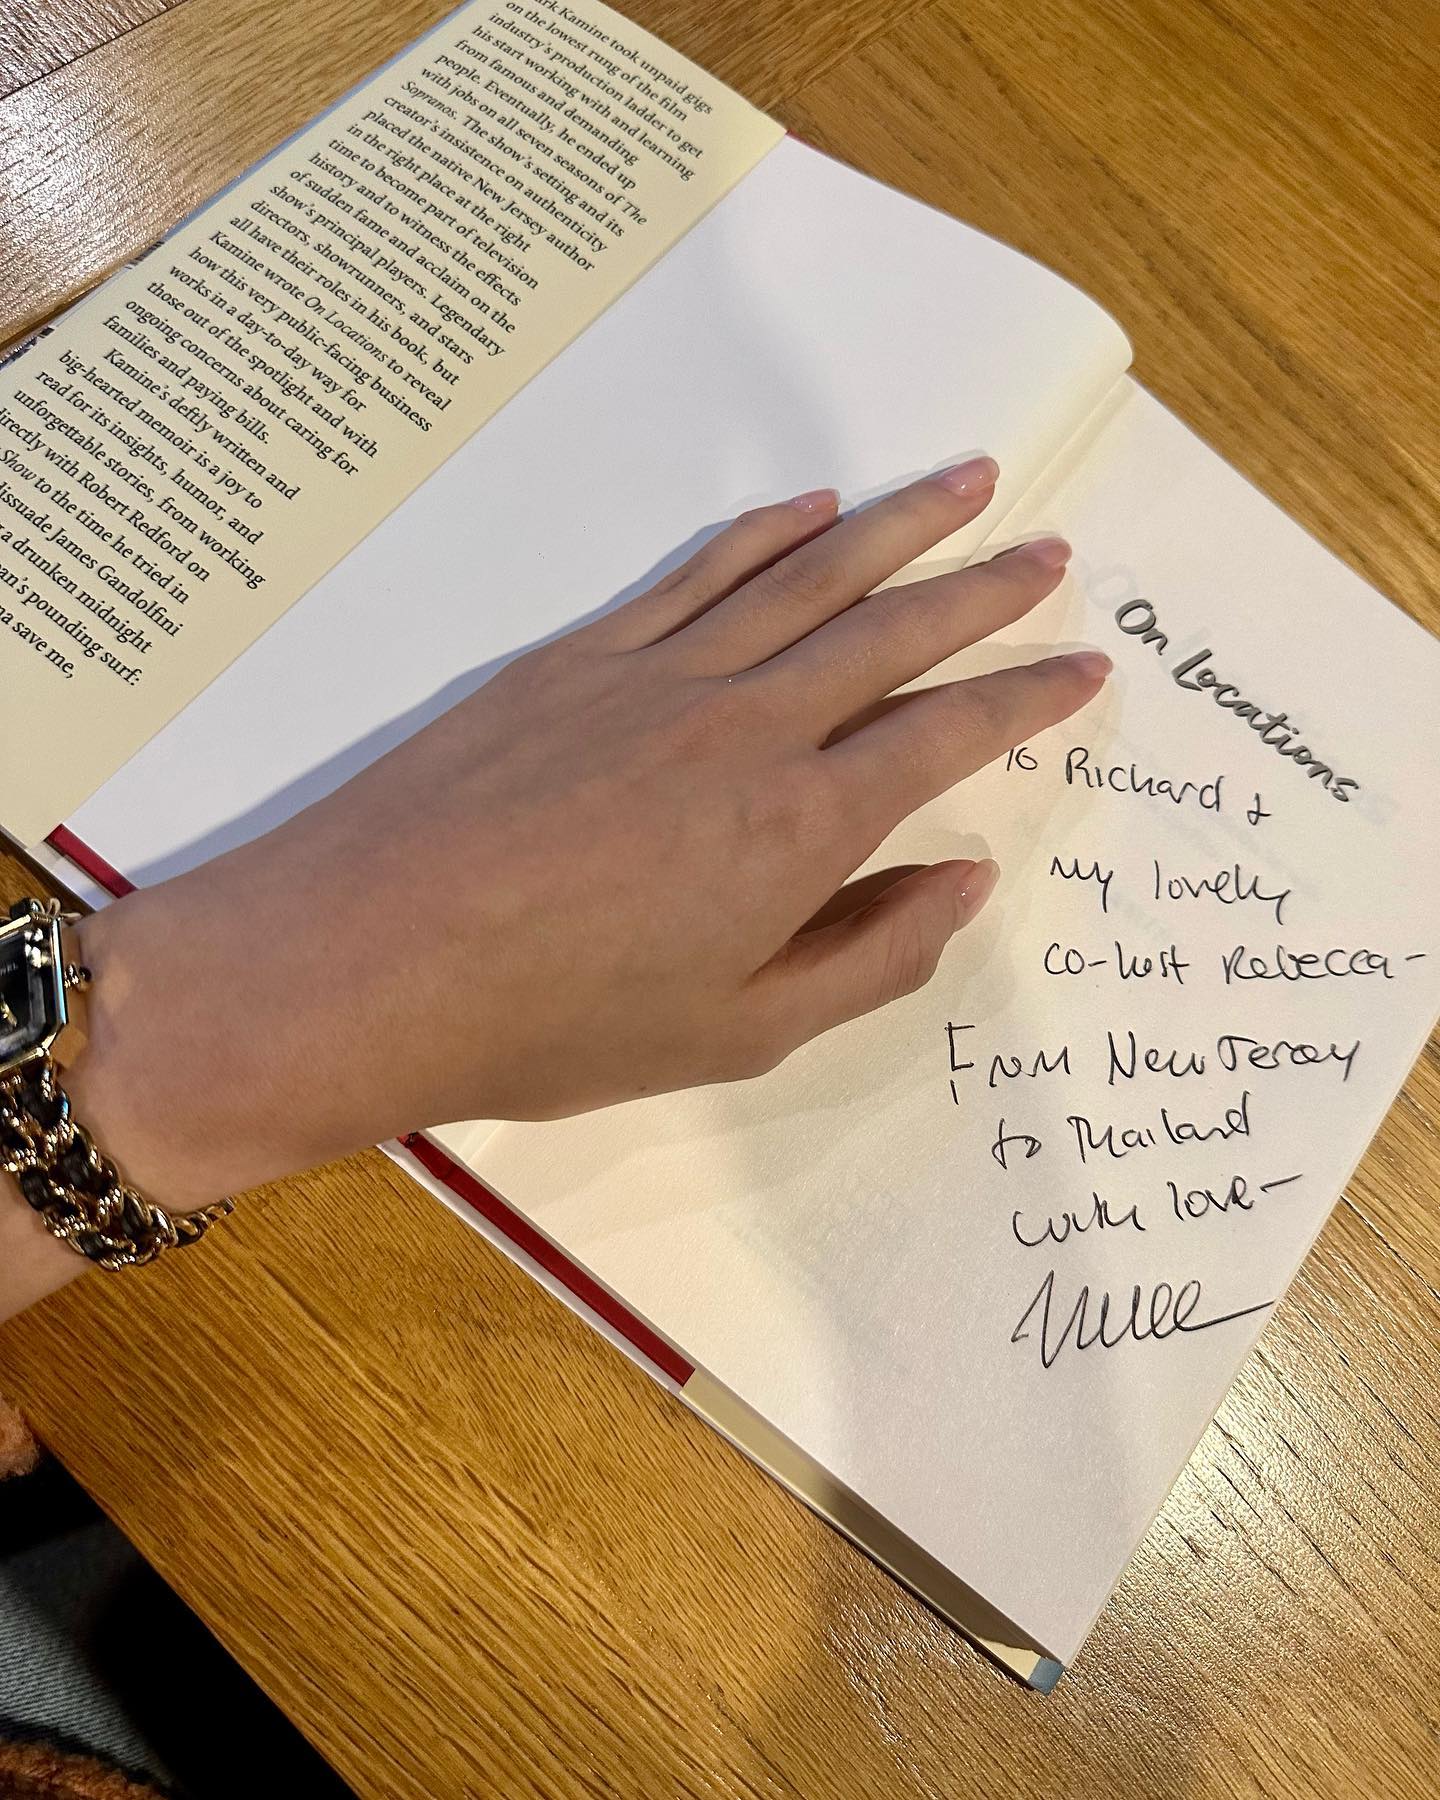 ark Kamine took unpaid gigs
on the lowest rung of the film
industry's production ladder to get
his start working with and learning
from famous and demanding
people. Eventually, he ended up
with jobs on all seven seasons of The
Sopranos. The show's setting and its
creator's insistence on authenticity
placed the native New Jersey author
in the right place at the right
time to become part of television
history and to witness the effects
of sudden fame and acclaim on the
show's principal players. Legendary
directors, showrunners, and stars
all have their roles in his book, but
Kamine wrote On Locations to reveal
how this very public-facing business
works in a day-to-day way for
those out of the spotlight and with
ongoing concerns about caring for
families and paying bills.
Kamine's deftly written and
big-hearted memoir is a joy to
read for its insights, humor, and
unforgettable stories, from working
directly with Robert Redford on
Show to the time he tried in
dissuade James Gandolfini
a drunken midnight
ean's pounding surf:
na save me,
On Locations
To Richard &
my lovely
co-host Rebecca-
From New Jersey
to Thailand
with love-